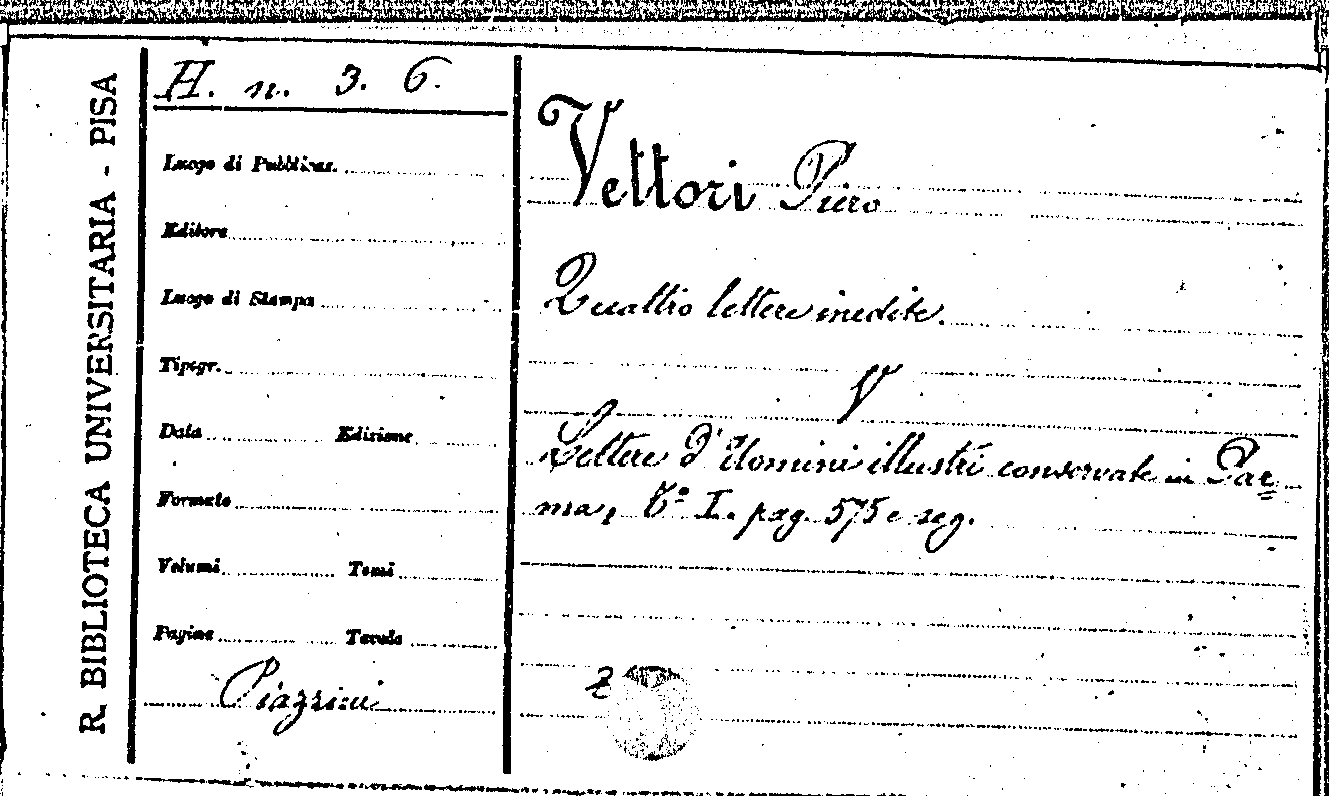 R. BIBLIOTECA UNIVERSITARIA - PISA
H. n. 3. 6.
Luogo di Pubblicaz.
Editore
Luogo di Stampa
Tipogr.
Data Edizione
Formato
Volumi Tomi
Pagine Tavole
Piazzini
Vettori Piero
Quattro lettere inedite.
V
Lettere d'Uomini illustri conservate in Par=
ma, T.º I. pag. 575 e seg.
2